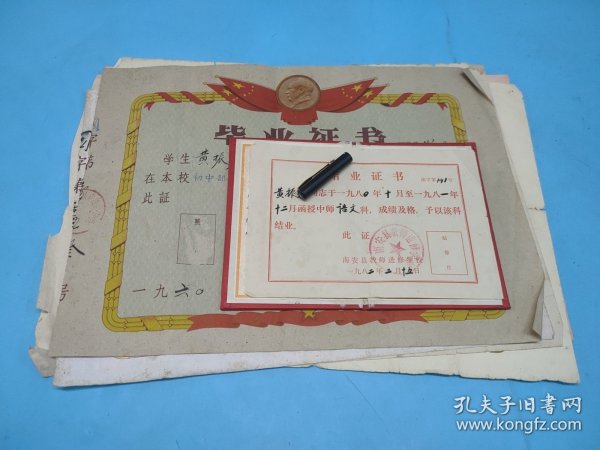 毕业证书
学生黄振
在本校初中部
此证
一九六〇
号
结业证书
黄振 同志于一九八〇年十月至一九八一年
十二月函授中师语文科,成绩及格,予以该科
结业。
此证
南安县教师进修学校
一九八二年二月十五日
孔夫子旧书网
www.kongfz.com